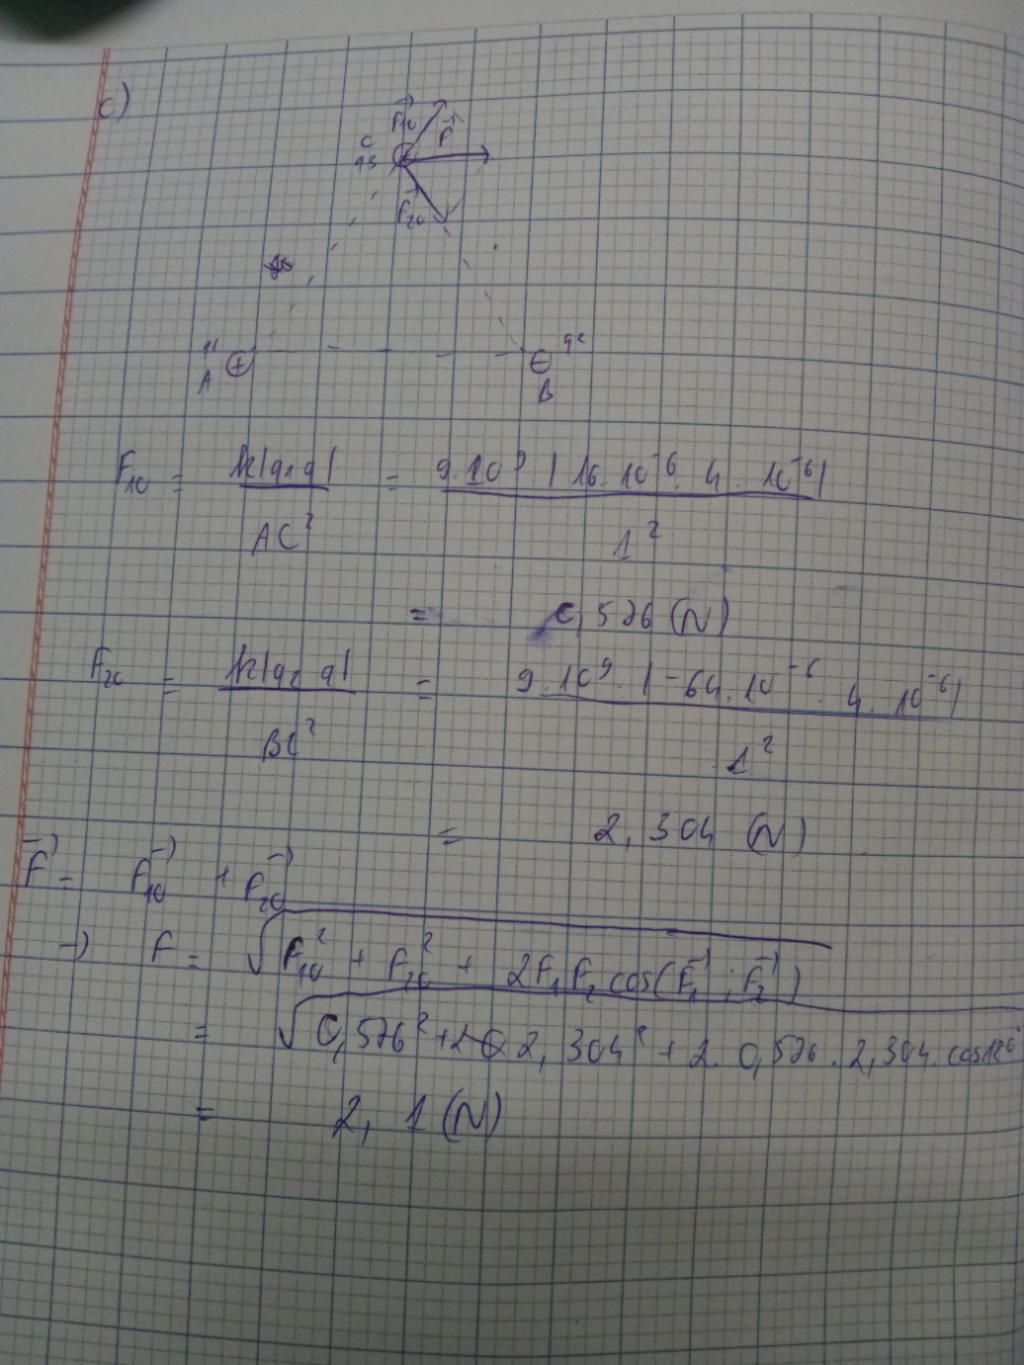 c)
F₁₀ F
C
q₃
F₂₀
q₁ q₂
A B
F₁₀ = k|q₁q| / AC² = 9.10⁹.|16.10⁻⁶.4.10⁻⁶| / 1²
= 0,576 (N)
F₂₀ = k|q₂q| / BC² = 9.10⁹.|-64.10⁻⁶.4.10⁻⁶| / 1²
= 2,304 (N)
F⃗ = F₁₀⃗ + F₂₀⃗
→ F = √(F₁₀² + F₂₀² + 2F₁F₂cos(F₁⃗; F₂⃗))
= √(0,576² + 2,304² + 2.0,576.2,304.cos120°)
= 2,1 (N)